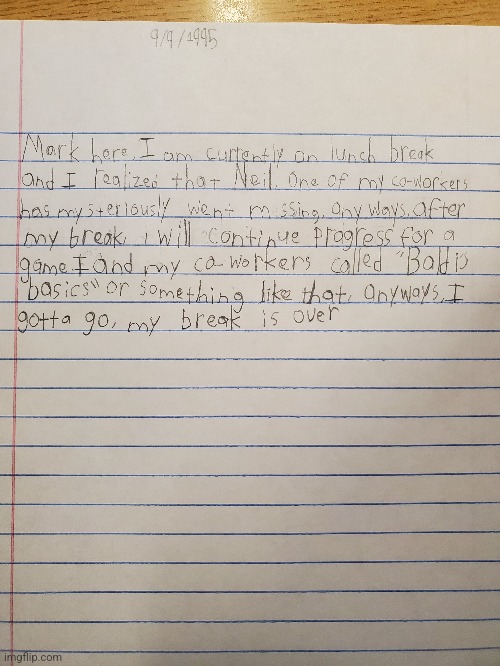 9/9/1995
Mark here, I am currently on lunch break
and I realized that Neil. One of my co-workers
has mysteriously went missing, anyways, after
my break, i will continue progress for a
game I and my co-workers called "Baldis
basics" or something like that, anyways, I
gotta go, my break is over
imgflip.com